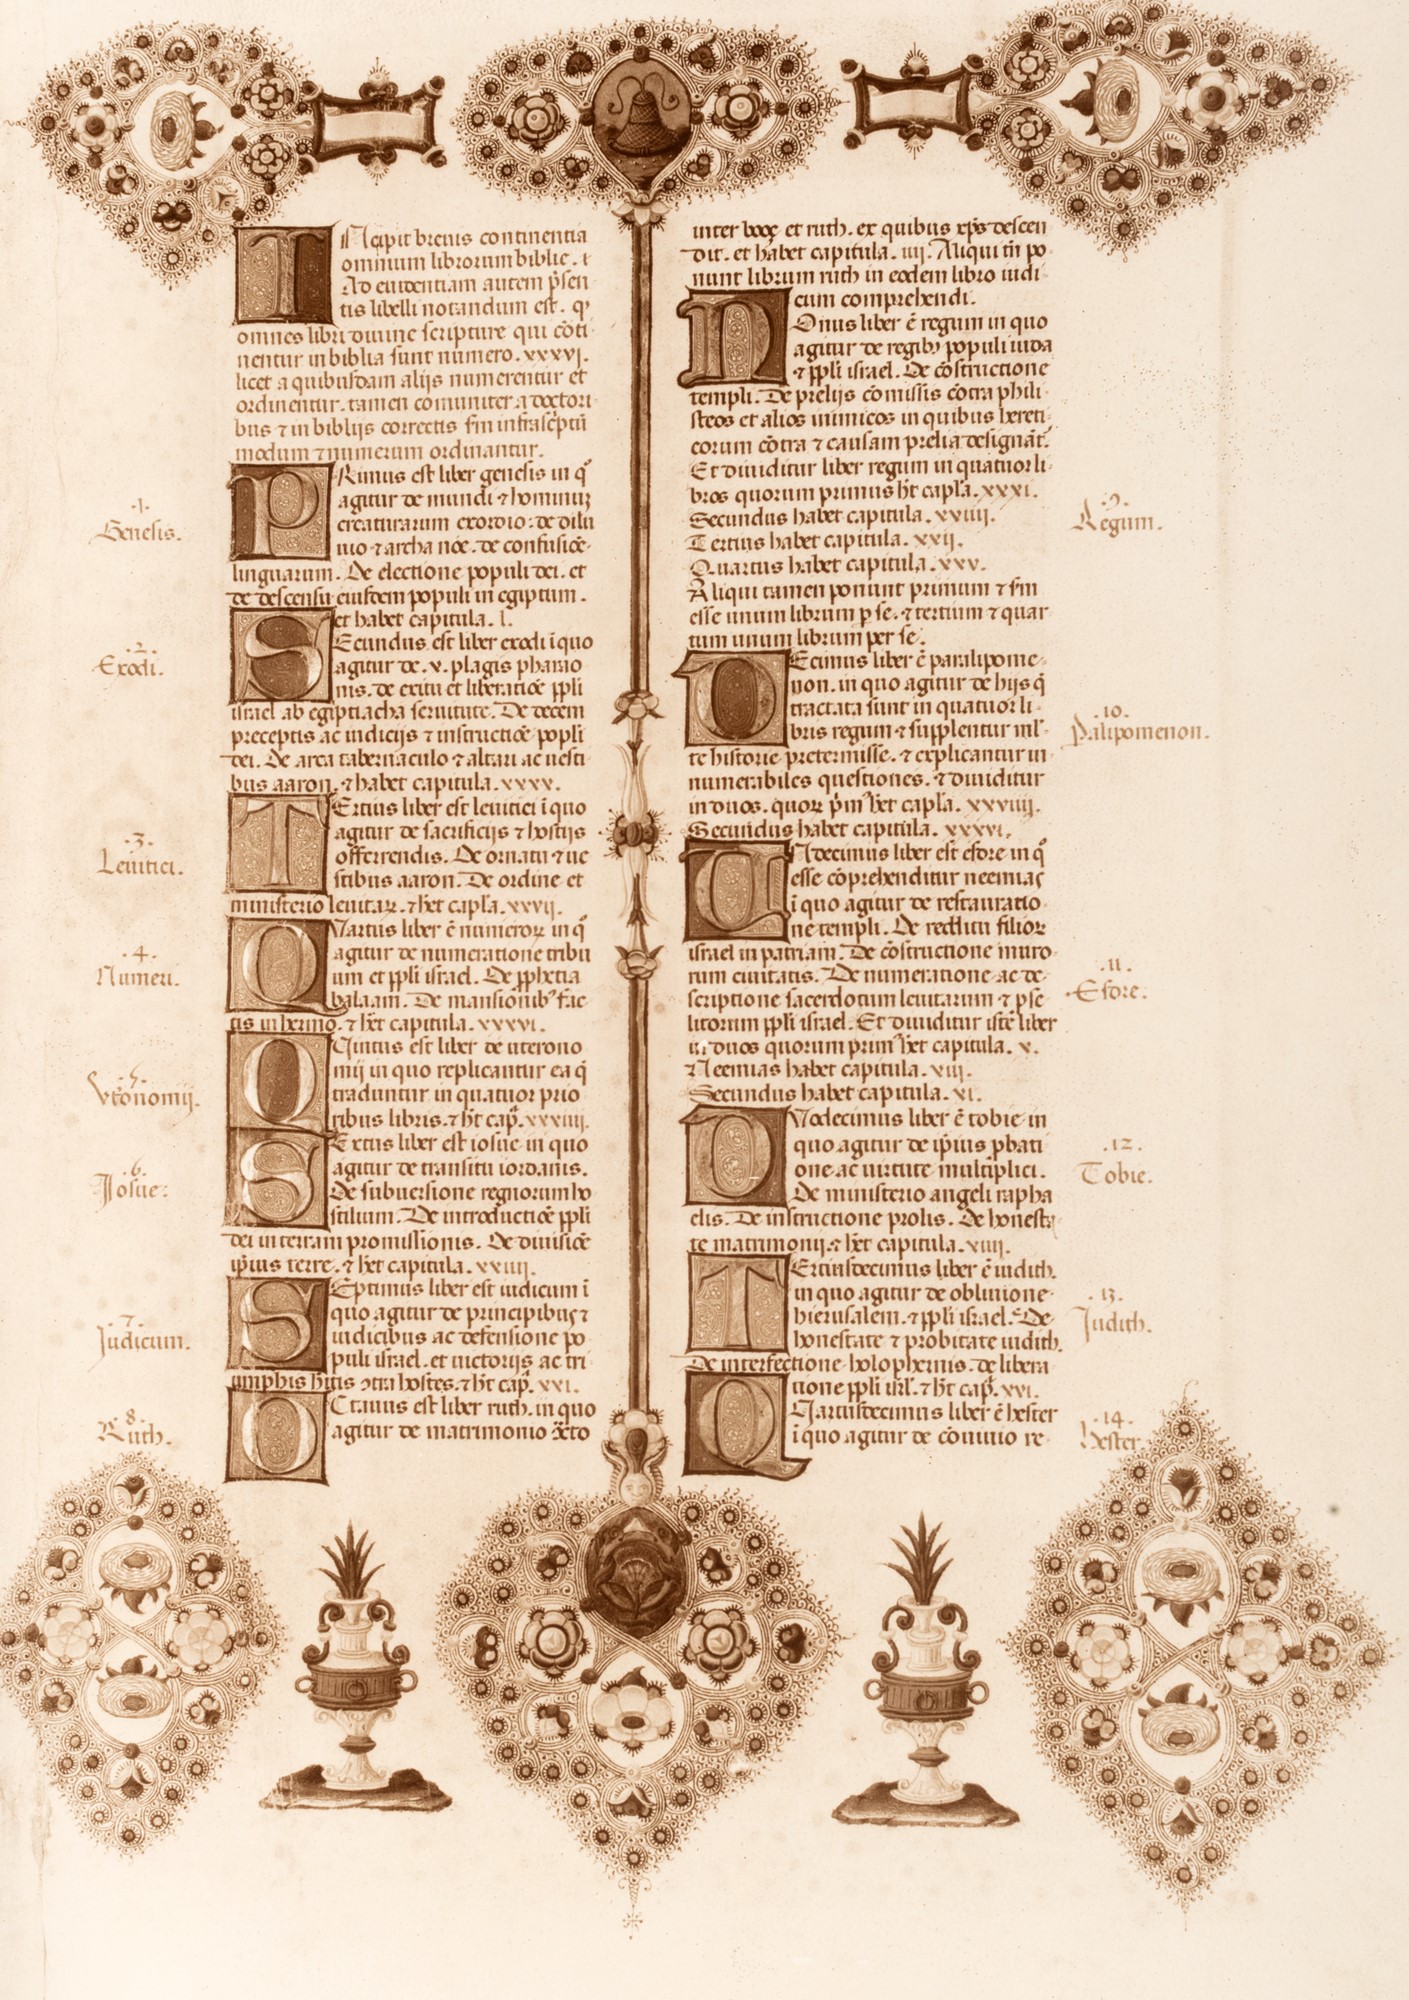 INcipit breuis continentia
omnium librorum biblie. ⁊
Ad euidentiam autem p̄sen
tis libelli notandum est. q̄
omnes libri diuine scripture qui cōti
nentur in biblia sunt numero. xxxvi.
licet a quibusdam alijs numerentur et
ordinentur. tamen cōmuniter a doctori
bus ⁊ in biblijs correctis s̄m infrascptū
modum ⁊ numerum ordinantur.
PRimus est liber genesis in q̊
agitur de mundi ⁊ hominuꝫ
creaturarum exordio. de dilu
uio ⁊ archa noe. de confusiōe
linguarum. De electione populi dei. et
de descensu eiusdem populi in egiptum.
et habet capitula. l.
.1.
Genesis.
SEcundus est liber exodi ī quo
agitur de .x. plagis pharao
nis. de exitu et liberatiōe ppli
israel ab egiptiacha seruitute. De decem
preceptis ac iudicijs ⁊ instructiōe popli
dei. De arca tabernaculo ⁊ altari ac uesti
bus aaron. ⁊ habet capitula. xxxx.
.2.
Exodi.
TErtius liber est leuitici ī quo
agitur de sacrificijs ⁊ hostijs
offerrendis. De ornatu ⁊ ue
stibus aaron. De ordine et
ministerio leuitaꝝ. ⁊ h̄et capl̄a. xxvii.
.3.
Leuitici.
QVartus liber ē numeroꝝ in q̊
agitur de numeratione tribu
um et ppli israel. De pphetia
balaam. De mansionibꝰ fac
tis in h̄ermo. ⁊ h̄et capitula. xxxvi.
.4.
Numeri.
QVintus est liber de uterono
mij in quo replicantur ea q̄
traduntur in quatuor prio
ribus libris. ⁊ h̄t cap̄. xxxiiii.
.5.
Vtōnomij.
SExtus liber est iosue in quo
agitur de transitu iordanis.
De subuersione regnorum ho
stilium. De introductiōe ppli
dei in terram promissionis. De diuisiōe
ip̄ius terre. ⁊ h̄et capitula. xxiiii.
.6.
Josue:
SEptimus liber est iudicum ī
quo agitur de principibus ⁊
iudicibus ac defensione po
puli israel. et uictorijs ac tri
umphis h̄itis ꝯtra hostes. ⁊ h̄t cap̄. xxi.
.7.
Judicum.
OCtauus est liber ruth. in quo
agitur de matrimonio
.8.
Ruth.
inter booꝫ et ruth. ex quibus xp̄s descen
dit. et habet capitula. iiij. Aliqui tn̄ po
nunt librum ruth in eodem libro iudi
cum comprehendi.
NOnus liber ē regum in quo
agitur de regibꝫ populi iuda
⁊ ppli israel. De cōstructione
templi. De prelijs cōmissis cōtra phili
steos et alios inimicos in quibus hereti
corum cōtra ⁊ causam prelia designāt.
Et diuiditur liber regum in quatuor li
bros quorum primus h̄t capl̄a. xxxi.
Secundus habet capitula. xxiiii.
Tertius habet capitula. xxii.
Quartus habet capitula. xxv.
Aliqui tamen ponunt primum ⁊ s̄m
esse unum librum ꝑ se. ⁊ tertium ⁊ quar
tum unum librum per se.
.9.
Regum.
DEcimus liber ē paralipome
non. in quo agitur de hijs q̄
tractata sunt in quatuor li
bris regum ⁊ supplentur ml̄
te historie pretermisse. ⁊ explicantur in
numerabiles questiones. ⁊ diuiditur
in duos. quoꝝ p̄m' h̄et capl̄a. xxviiii.
Secundus habet capitula. xxxvi.
.10.
Palipomenon.
UNdecimus liber est esdre in q̊
esse cōprehenditur neemias
ī quo agitur de restauratio
ne templi. De reditu filioꝝ
israel in patriam. De cōstructione muro
rum ciuitatis. De numeratione ac de
scriptione sacerdotum leuitarum ⁊ p̄se
litorum ppli israel. Et diuiditur iste liber
in duos quorum prim' h̄et capitula. x.
Neemias habet capitula. xiii.
Secundus habet capitula. xi.
.11.
Esdre.
DVodecimus liber ē tobie in
quo agitur de ip̄ius pbati
one ac uirtute multiplici.
De ministerio angeli rapha
elis. De instructione prolis. De honesta
te matrimonij. ⁊ h̄et capitula. xiiii.
.12.
Tobie.
TErtiusdecimus liber ē iudith.
in quo agitur de obliuione
hierusalem. ⁊ ppli israel. De
honestate ⁊ probitate iudith.
De interfectione holophernis. de libera
tione ppli isrl̄. ⁊ h̄t cap̄. xvi.
.13.
Judith.
QVartusdecimus liber ē hester
ī quo agitur de cōuiuio re
.14.
Hester